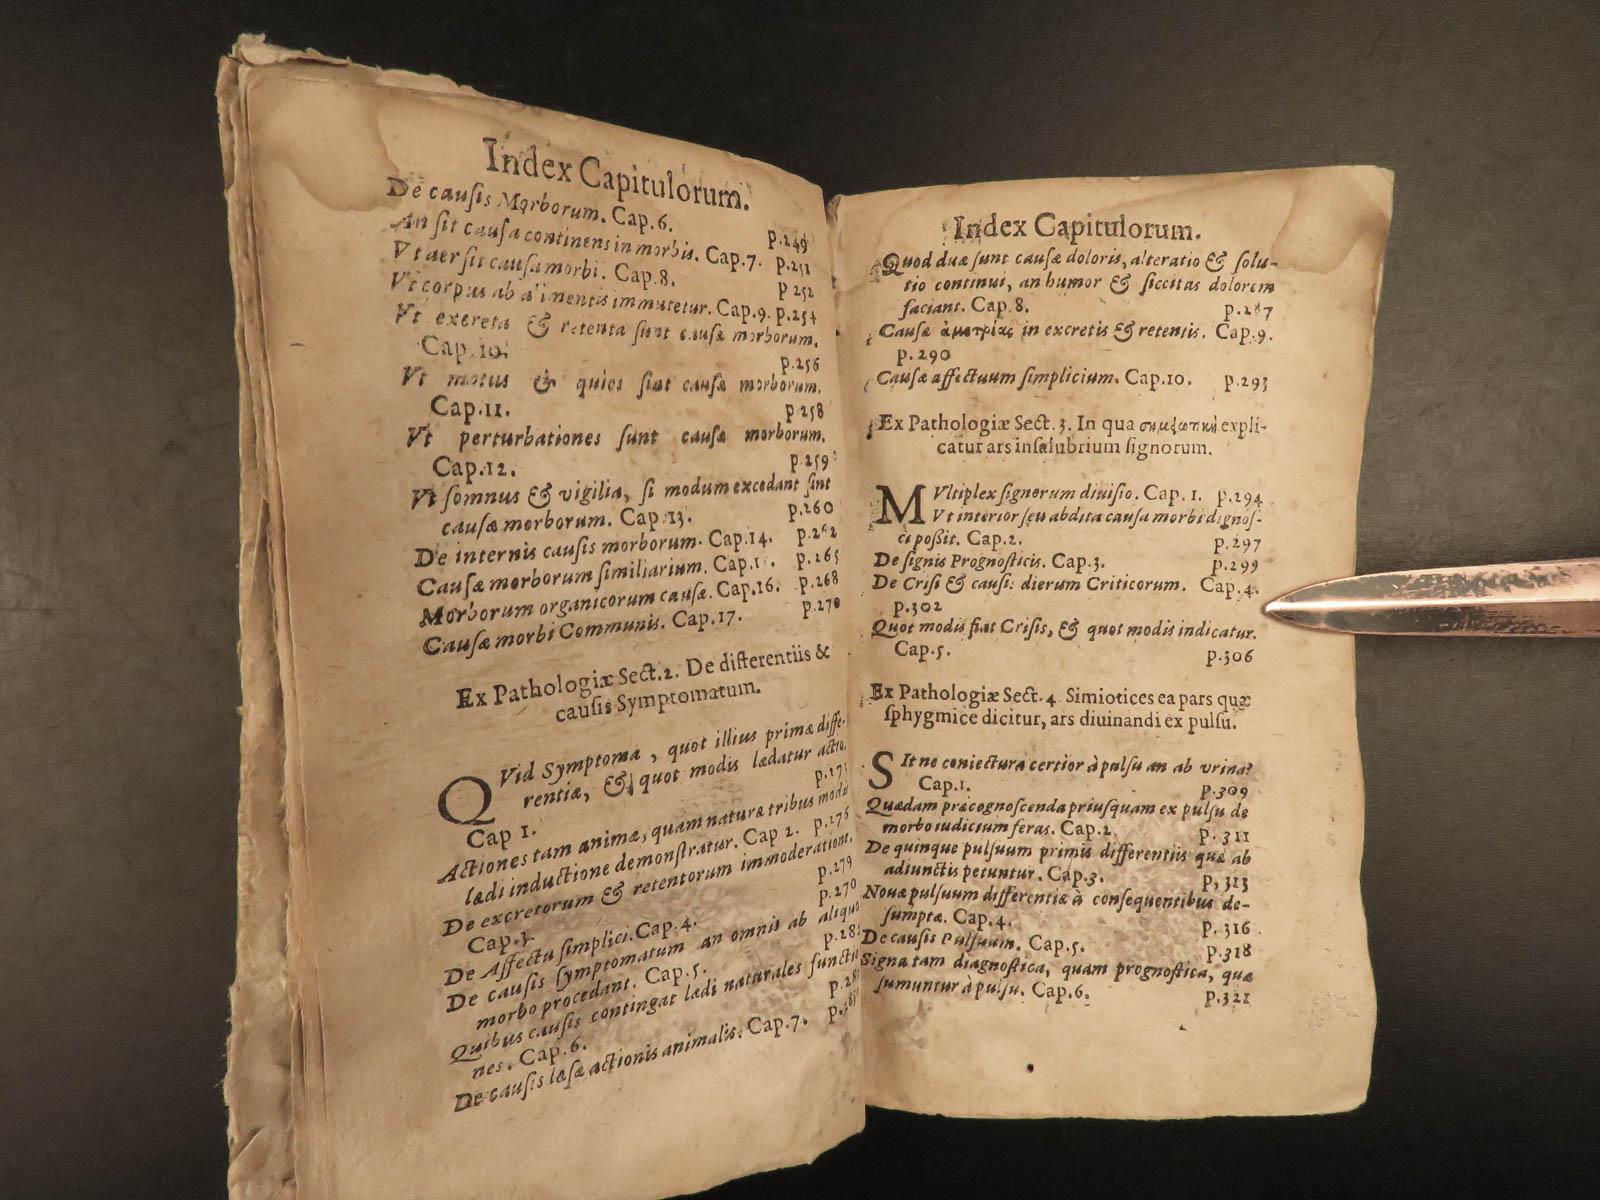 Index Capitulorum.
De cauſis Morborum. Cap.6. p.249
An ſit cauſa continens in morbis. Cap.7. p.251
Vt aer ſit cauſa morbi. Cap.8. p 252
Vt corpus ab alimentis immutetur. Cap.9. p.254
Vt excreta & retenta ſunt cauſæ morborum.
Cap.10. p.256
Vt motus & quies ſint cauſæ morborum.
Cap.11. p.258
Vt perturbationes ſunt cauſæ morborum.
Cap.12. p.259
Vt ſomnus & vigilia, ſi modum excedant ſint
cauſæ morborum. Cap.13. p.260
De internis cauſis morborum. Cap.14. p.262
Cauſæ morborum ſimilarium. p.265
Morborum organicorum cauſæ. Cap.16. p.268
Cauſæ morbi Communis. Cap.17. p.270
Ex Pathologiæ Sect.2. De differentiis &
cauſis Symptomatum.
QVid Symptoma, quot illius primæ diffe-
rentiæ, & quot modis lædatur actio.
Cap 1.
Actiones tam animæ, quam naturæ tribus modis
lædi inductione demonſtratur. Cap 2. p.276
De excretorum & retentorum immoderatione.
Cap.3 p.279
De Affectu ſimplici. Cap.4. p.270
De cauſis ſymptomatum an omnis ab aliquo
morbo procedant. Cap.5.
Quibus cauſis contingat lædi naturales functio
nes. Cap.6.
De cauſis læſæ actionis animalis. Cap.7.
Index Capitulorum.
Quod duæ ſunt cauſæ doloris, alteratio & ſolu-
tio continui, an humor & ſiccitas dolorem
faciant. Cap.8. p.287
Cauſæ ἀμετρίας in excretis & retentis. Cap.9.
p.290
Cauſæ affectuum ſimplicium. Cap.10. p.293
Ex Pathologiæ Sect.3. In qua σημειωτικὴ expli-
catur ars inſalubrium ſignorum.
MVltiplex ſignorum diuiſio. Cap.1. p.294
Vt interior ſeu abdita cauſa morbi dignoſ-
ci poßit. Cap.2. p.297
De ſignis Prognoſticis. Cap.3. p.299
De Criſi & cauſis dierum Criticorum. Cap.4.
p.302
Quot modis fiat Criſis, & quot modis indicatur.
Cap.5. p.306
Ex Pathologiæ Sect.4. Simiotices ea pars quæ
ſphygmice dicitur, ars diuinandi ex pulſu.
SIt ne coniectura certior à pulſu an ab vrina?
Cap.1. p.309
Quædam præcognoſcenda priuſquam ex pulſu de
morbo iudicium feras. Cap.2. p.311
De quinque pulſuum primis differentiis quæ ab
adiunctis petuntur. Cap.3. p,313
Nouæ pulſuum differentiæ à conſequentibus de-
ſumptæ. Cap.4. p.316
De cauſis Pulſuum. Cap.5. p.318
Signa tam diagnoſtica, quam prognoſtica, quæ
ſumuntur à pulſu. Cap.6. p.321